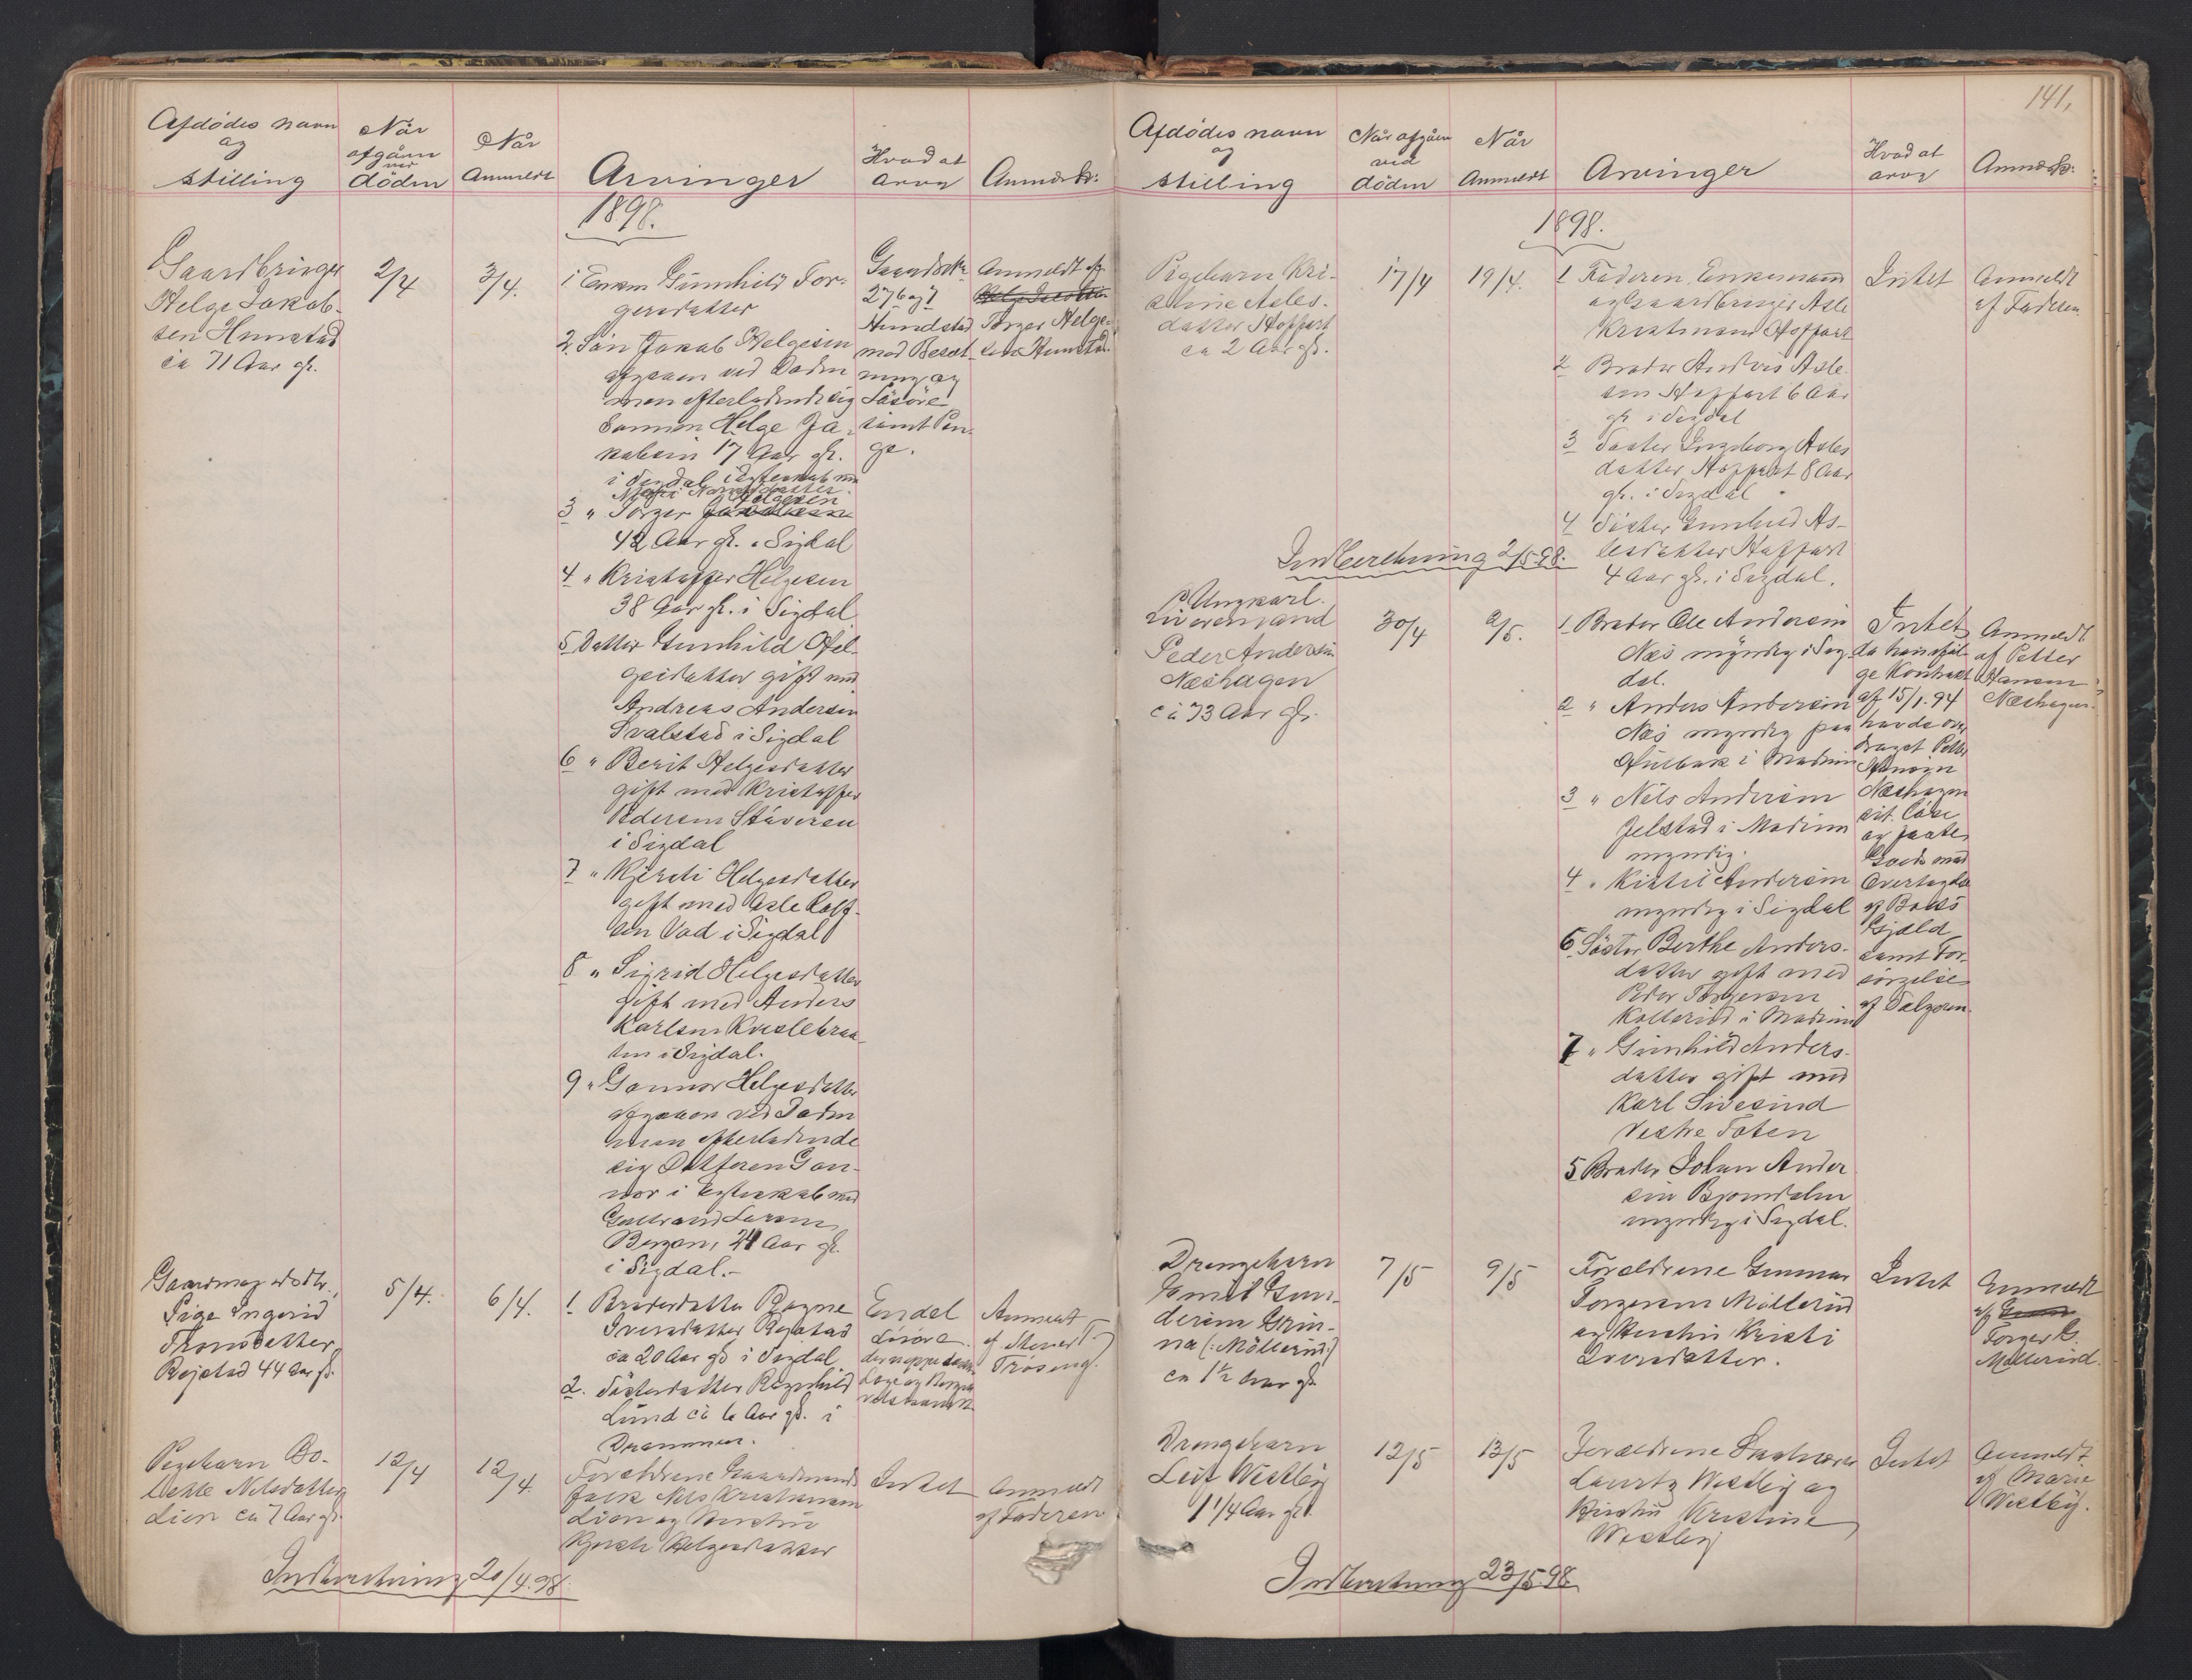 Afdødes navn
og
stilling
Når
afgåen
ved
døden
Når
Anmeldt
Arvinger
Hvad at
arve
Anmærk:
1898.
Gaardbruger
Helge Jakob-
sen Hunstad
ca 71 Aar gl.
2/4
3/4.
1 Enken Gunhild Tor-
gersdatter
2. Søn Jakob Helgesen
afgaaen ved Døden
men efterladende sig
Sønnen Helge Ja-
kobsen 17 Aar gl.
i Sigdal i Ægteskab m
3 " Torger Helgesen
42 Aar gl. i Sigdal
4 " Kristoffer Helgesen
38 Aar gl. i Sigdal
5 Datter Gunhild Hel-
gesdatter gift med
Andreas Andersen
Svalstad i Sigdal
6 " Berit Helgesdatter
gift med Kristoffer
Pedersen Støveren
i Sigdal
7 " Kjersti Helgesdatter
gift med Asle
sen Vad i Sigdal
8 " Sigrid Helgesdatter
gift med Anders
Karlsen Kvislebraa-
ten i Sigdal.
9 " Gonnor Helgesdatter
afgaaen ved Døden
men efterladende
sig Datteren Gon-
nor i Ægteskab med
Gulbrand Larsen
Bergan, 24 Aar gl.
i Sigdal.-
Gaardsk
276 af 1
Hunstad
med Besæt-
ning og
Løsøre
samt Pen-
ge.
Anmeldt af
Torger Helge-
sen Hunstad
Gaardmag
Pige Ingerid
Tronsdatter
Bejstad 44 Aar gl.
5/4.
6/4.
1. Brodersdatter Ragne
Iversdatter Bejstad
ca 20 Aar gl i Sigdal
2. Søsterdatter Ragnhild
Lund ca 6 Aar gl. i
Drammen.
Endel
Løsøre
der neppe dækker
Læge og Begra
velsesomk.
Anmeldt
af Stener T.
Trøseng.
Pigebarn Bo-
lette Nilsdatter
Lien ca 7 Aar gl.
12/4
12/4
Forældrene Gaardmands
folk Nils Kristiansen
Lien og Hustru
Kjersti Helgesdatter
Intet
Anmeldt
af Faderen
Indberetning 20/4.98.
141,
Afdødes navn
og
stilling
Når afgåen
ved
døden
Når
Anmeldt
Arvinger
Hvad at
arve
Anmærk:
1898.
Pigebarn Kri-
stine Asles-
datter Hoffart
ca 2 Aar gl.
17/4
19/4.
1 Faderen Enkemann
og Gaardbruger Asle
Kristiansen Hoffart
2 Broder Anders Asle-
sen Hoffart 6 Aar
gl. i Sigdal
3 Søster Ingeborg Asles
datter Hoffart 8 Aar
gl. i Sigdal
4 Søster Gunhild As-
lesdatter Hoffart
4 Aar gl. i Sigdal.
Intet
Anmeldt
af Faderen
Indberetning 2/5 98.
Ungkarl.
Livøremand
Peder Andersen
Næshagen
ca 73 Aar gl.
30/4
2/5.
1. Broder Ole Andersen
Næs myndig i Sig-
dal.
2 " Anders Andersen
Næs myndig paa
i Modum
3 " Nils Andersen
Jelstad i Modum
myndig.
4 " Kittil Andersen
myndig i Sigdal
6 Søster Berthe Anders-
datter gift med
Peder Torgersen
Kollerud i Modum
7 " Gunhild Anders-
datter gift med
Karl Sivesind
Vestre Toten
5 Broder Johan Ander
sen Bjørndalen
myndig i Sigdal.
Intet,
da han iføl-
ge Kontrakt
af 15/1.94
havde over
draget Petter
Hansen
Næshagen
sit løse
og faste
Gods mod
Overtagelse
af Boets
Gjæld
samt For-
sørgelse
af Sælgeren.
Anmeldt
af Petter
Hansen
Næshagen.
Drengebarn
Emil Gun-
dersen Grin-
na (: Møllerud:)
ca 1½ Aar gl.
7/5
9/5
Forældrene Gunnar
Torgersen Møllerud
og Hustru Kristi
Iversdatter.
Intet
Anmeldt
af
Torger G.
Møllerud.
Drengebarn
Leif Westby
1 1/4 Aar gl.
12/5
13/5
Forældrene
Lauritz Westby og
Hustru Kristine
Westby
Intet
Anmeldt
af Marie
Westby.
Indberetning 23/5.98.